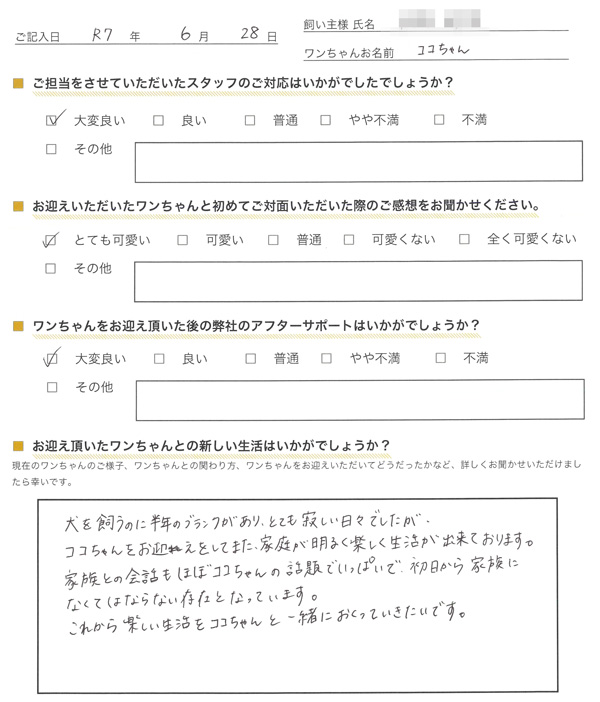 ご記入日 R7 年 6 月 28 日
飼い主様 氏名
ワンちゃんお名前 ココちゃん
■ ご担当をさせていただいたスタッフのご対応はいかがでしたでしょうか?
☑ 大変良い □ 良い □ 普通 □ やや不満 □ 不満
□ その他
■ お迎えいただいたワンちゃんと初めてご対面いただいた際のご感想をお聞かせください。
☑ とても可愛い □ 可愛い □ 普通 □ 可愛くない □ 全く可愛くない
□ その他
■ ワンちゃんをお迎え頂いた後の弊社のアフターサポートはいかがでしょうか?
☑ 大変良い □ 良い □ 普通 □ やや不満 □ 不満
□ その他
■ お迎え頂いたワンちゃんとの新しい生活はいかがでしょうか?
現在のワンちゃんのご様子、ワンちゃんとの関わり方、ワンちゃんをお迎えいただいてどうだったかなど、詳しくお聞かせいただけまし
たら幸いです。
犬を飼うのに半年のブランクがあり、とても寂しい日々でしたが、
ココちゃんをお迎えをしてまた、家庭が明るく楽しく生活が出来ております。
家族との会話もほぼココちゃんの話題でいっぱいで、初日から家族に
なくてはならない存在となっています。
これから楽しい生活をココちゃんと一緒におくっていきたいです。